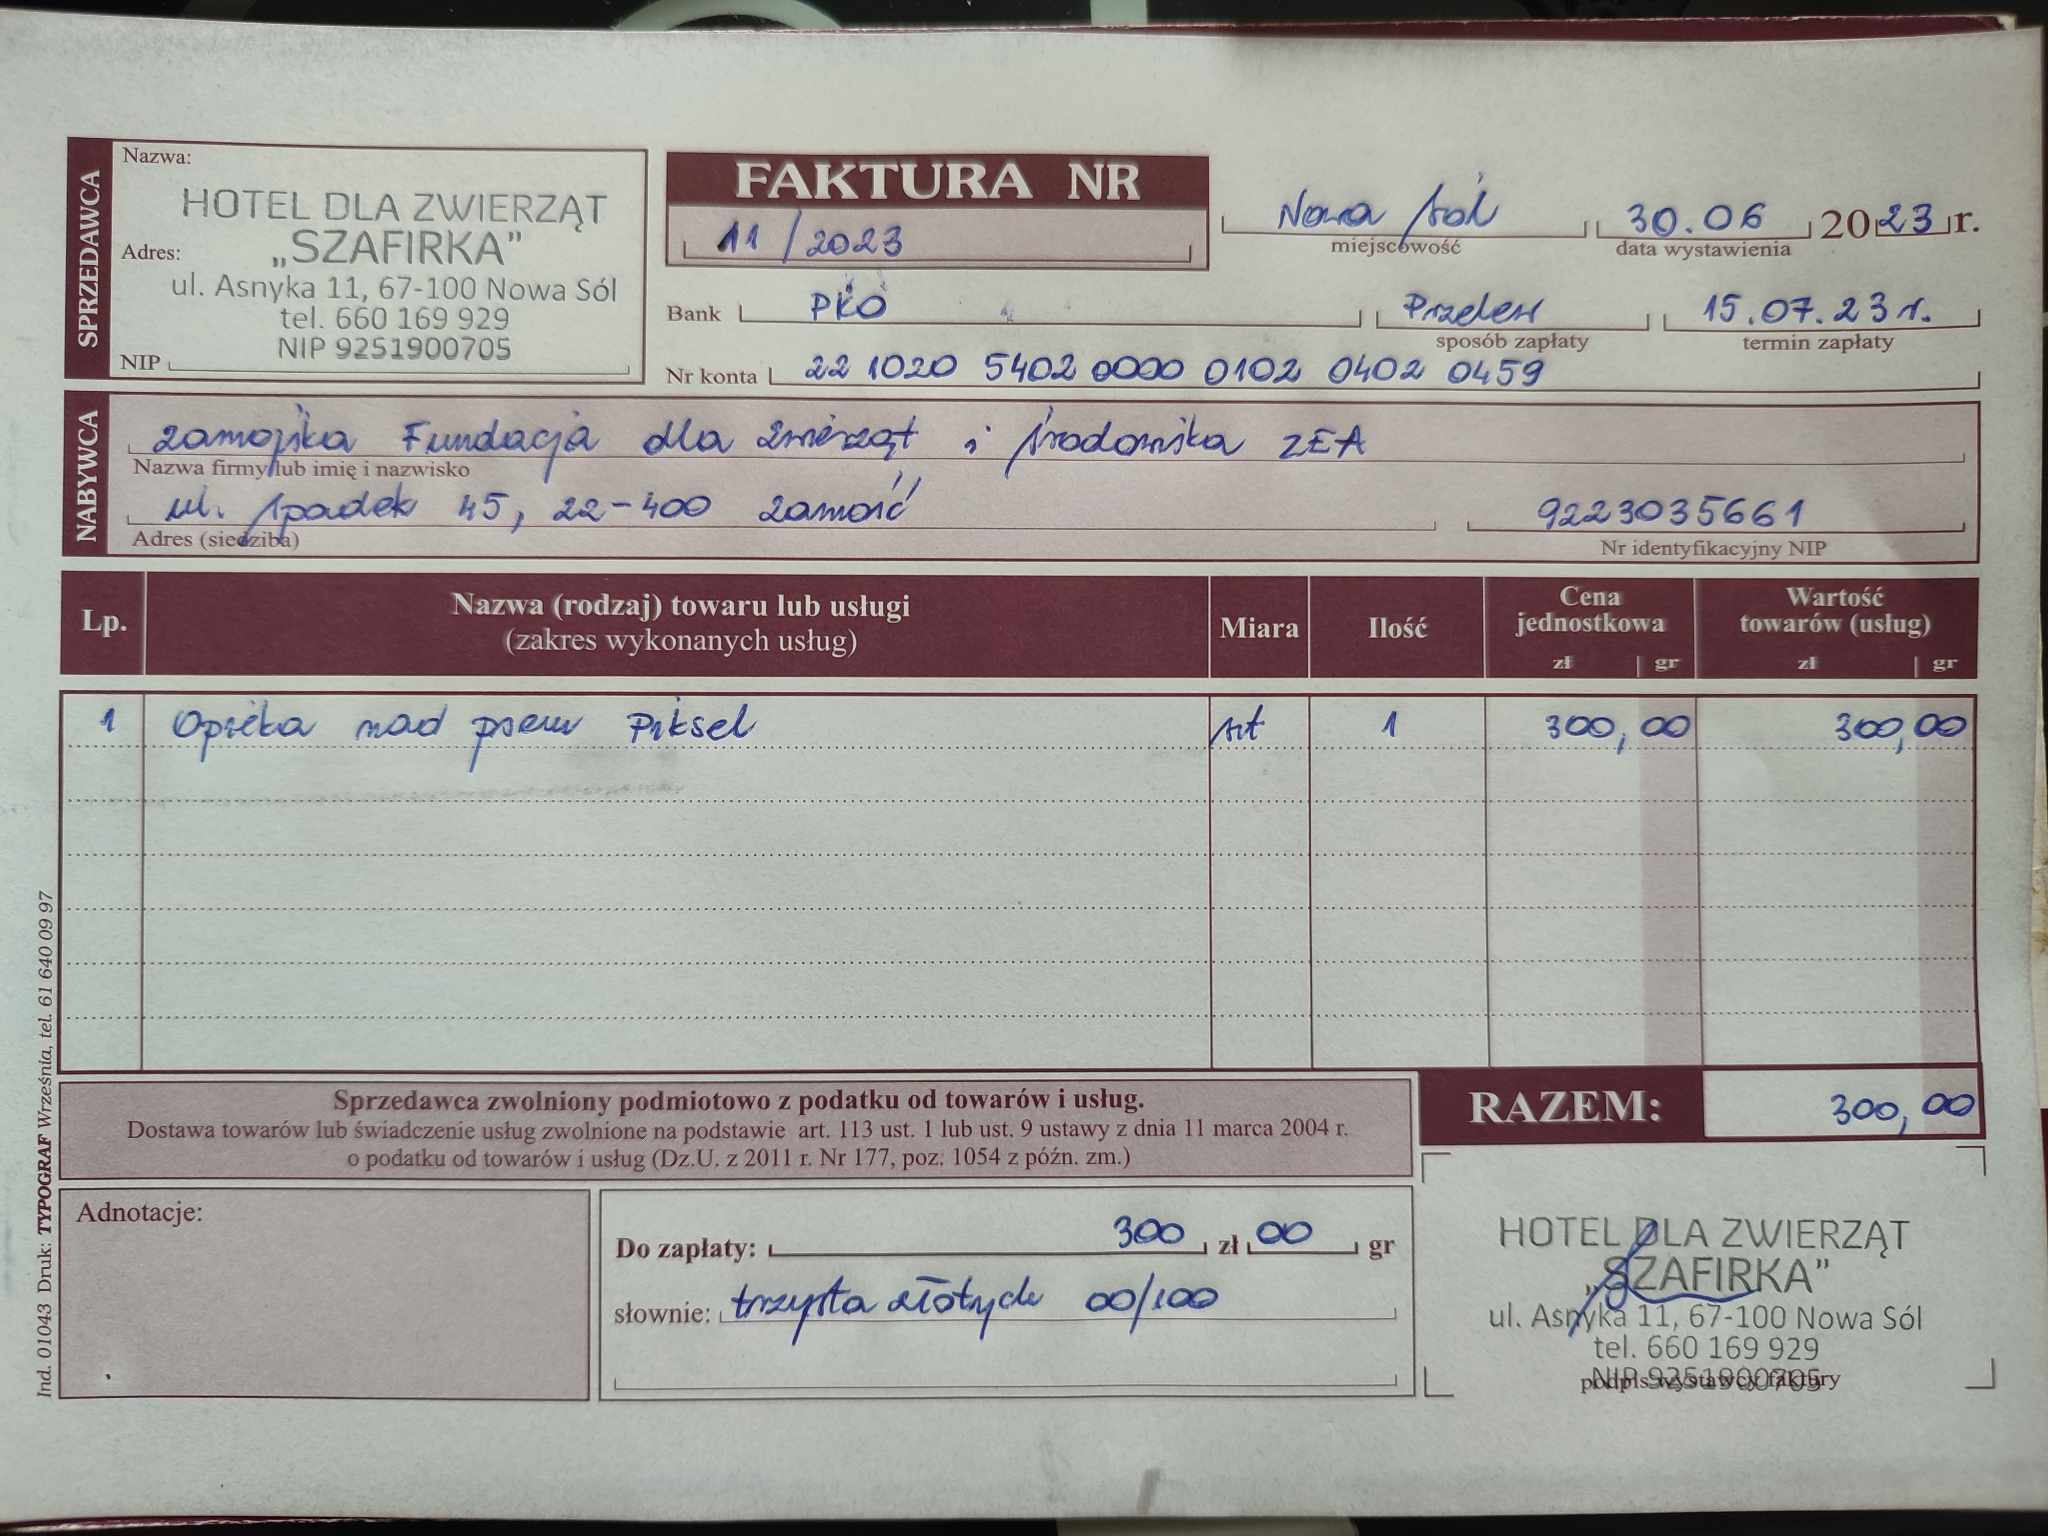 SPRZEDAWCA
Nazwa:
HOTEL DLA ZWIERZĄT
Adres: „SZAFIRKA”
ul. Asnyka 11, 67-100 Nowa Sól
tel. 660 169 929
NIP NIP 9251900705
FAKTURA NR
11/2023
Nowa Sól 30.06 2023 r.
miejscowość data wystawienia
Bank PKO Przelew 15.07.23 r.
sposób zapłaty termin zapłaty
Nr konta 22 1020 5402 0000 0102 0402 0459
NABYWCA
Zamojska Fundacja dla Zwierząt i Środowiska ZEA
Nazwa firmy lub imię i nazwisko
ul. Spadek 45, 22-400 Zamość 9223035661
Adres (siedziba) Nr identyfikacyjny NIP
Lp. Nazwa (rodzaj) towaru lub usługi (zakres wykonanych usług) Miara Ilość Cena jednostkowa zł gr Wartość towarów (usług) zł gr
1 Opieka nad psem Piksel szt 1 300,00 300,00
RAZEM: 300,00
Sprzedawca zwolniony podmiotowo z podatku od towarów i usług.
Dostawa towarów lub świadczenie usług zwolnione na podstawie art. 113 ust. 1 lub ust. 9 ustawy z dnia 11 marca 2004 r.
o podatku od towarów i usług (Dz.U. z 2011 r. Nr 177, poz. 1054 z późn. zm.)
Adnotacje:
Do zapłaty: 300 zł 00 gr
słownie: trzysta złotych 00/100
HOTEL DLA ZWIERZĄT
„SZAFIRKA”
ul. Asnyka 11, 67-100 Nowa Sól
tel. 660 169 929
NIP 9251900705
podpis wystawcy faktury
Ind. 01043 Druk: TYPOGRAF Września, tel. 61 640 09 97